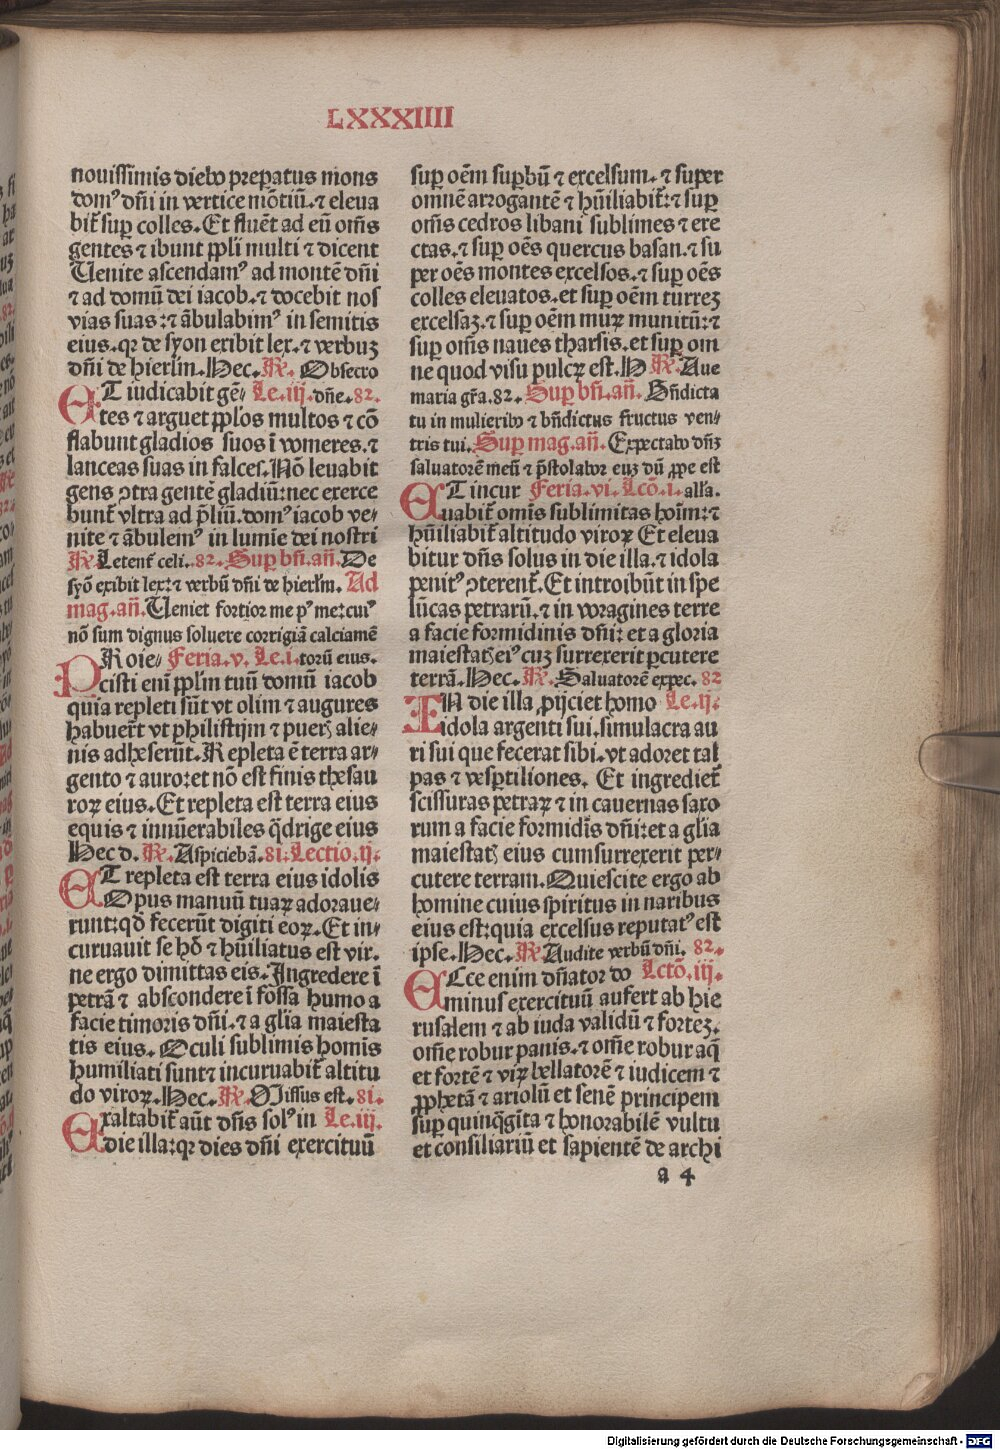 LXXXIIII
nouissimis diebꝰ preparatus mons
domꝰ dñi in vertice mõtiũ. ⁊ eleua
bit̃ sup colles. Et fluẽt ad eũ om̃s
gentes ⁊ ibunt ppli multi ⁊ dicent
Uenite ascendamꝰ ad montẽ dñi
⁊ ad domũ dei iacob. ⁊ docebit nos
vias suas: ⁊ ãbulabimꝰ in semitis
eius. qꝛ de syon exibit lex. ⁊ verbuꝫ
dñi de hierl̃m. Hec. ℟. Obsecro
ET iudicabit gẽ- Le. iij. dñe. 82.
tes ⁊ arguet pplos multos ⁊ cõ
flabunt gladios suos ĩ vomeres. ⁊
lanceas suas in falces. Nõ leuabit
gens ꝯtra gentẽ gladiũ: nec exerce
bunt̃ vltra ad p̃liũ. domꝰ iacob ve-
nite ⁊ ãbulemꝰ in lumĩe dei nostri
℟. Letent̃ celi. 82. Sup bñ. añ. De
syõ exibit lex: ⁊ verbũ dñi de hierl̃m. Ad
mag. añ. Ueniet fortior me pꝰ me: cuiꝰ
nõ sum dignus soluere corrigiã calciamẽ
PRoie- Feria. v. Le. i. torũ eius.
cisti enĩ ppl̃m tuũ domũ iacob
quia repleti sũt vt olim ⁊ augures
habuer̃t vt philistijm ⁊ pueris alie-
nis adheserũt. Repleta ẽ terra ar-
gento ⁊ auro: et nõ est finis thesau
roꝝ eius. Et repleta est terra eius
equis ⁊ innũerabiles q̃drige eius
Hec d. ℟. Aspiciebã. 81. Lectio. ij.
ET repleta est terra eius idolis
Opus manuũ tuaꝝ adoraue-
runt: qd̃ fecerũt digiti eoꝝ. Et in-
curuauit se hõ ⁊ hũiliatus est vir.
ne ergo dimittas eis. Ingredere ĩ
petrã ⁊ abscondere ĩ fossa humo a
facie timoris dñi. ⁊ a glia maiesta
tis eius. Oculi sublimis homĩs
humiliati sunt: ⁊ incuruabit̃ altitu
do viroꝝ. Hec. ℟. Missus est. 81.
Exaltabit̃ aũt dñs solꝰ in Le. iij.
die illa: qꝛ dies dñi exercituũ
sup oẽm supbũ ⁊ excelsum. ⁊ super
omnẽ arrogantẽ ⁊ hũiliabit̃: ⁊ sup
om̃s cedros libani sublimes ⁊ ere
ctas. ⁊ sup oẽs quercus basan. ⁊ su
per oẽs montes excelsos. ⁊ sup oẽs
colles eleuatos. et sup oẽm turreꝫ
excelsaꝫ. ⁊ sup oẽm muꝝ munitũ: ⁊
sup om̃s naues tharsis. et sup om
ne quod visu pulcꝝ est. H ℟. Aue
maria gr̃a. 82. Sup bñ. añ. Bñdicta
tu in mulieribꝰ ⁊ bñdictus fructus ven-
tris tui. Sup mag. añ. Expectabo dñꝫ
saluatorẽ meũ ⁊ p̃stolabor euꝫ dũ ꝓpe est
ET incur Feria. vi. Lcõ. i. all'a.
uabit̃ omĩs sublimitas hoĩm: ⁊
hũiliabit̃ altitudo viroꝝ Et eleua
bitur dñs solus in die illa. ⁊ idola
penitꝰ ꝯterent̃. Et introibũt in spe
lũcas petrarũ. ⁊ in voragines terre
a facie formidinis dñi: et a gloria
maiestatis eiꝰ cuꝫ surrexerit pcutere
terrã. Hec. ℟. Saluatorẽ expec. 82
IN die illa ꝓijciet homo Le. ij.
idola argenti sui. simulacra au
ri sui que fecerat sibi. vt adoret tal
pas ⁊ vesptiliones. Et ingrediet̃
scissuras petraꝝ ⁊ in cauernas saxo
rum a facie formidĩs dñi: et a glia
maiestatis eius cum surrexerit per-
cutere terram. Quiescite ergo ab
homine cuius spiritus in naribus
eius est: quia excelsus reputatꝰ est
ipse. Hec. ℟. Audite verbũ dñi. 82.
ECce enim dñator do Lctõ. iij.
minus exercituũ aufert ab hie
rusalem ⁊ ab iuda validũ ⁊ forteꝫ.
om̃e robur panis. ⁊ om̃e robur aq̃
et fortẽ ⁊ viꝝ bellatorẽ ⁊ iudicem ⁊
ꝓphetã ⁊ ariolũ et senẽ principem
sup quinq̃gĩta ⁊ honorabilẽ vultu
et consiliariũ et sapientẽ de archi
a 4
Digitalisierung gefördert durch die Deutsche Forschungsgemeinschaft - DFG